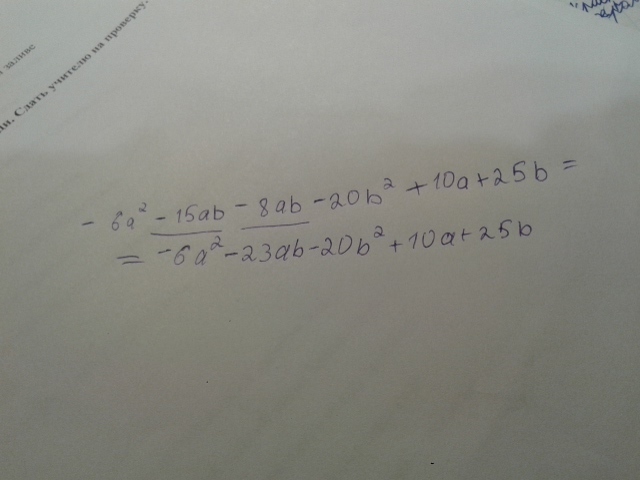 заливе
Сдать учителю на проверку.
- 6a² - 15ab - 8ab - 20b² + 10a + 25b =
= -6a² - 23ab - 20b² + 10a + 25b